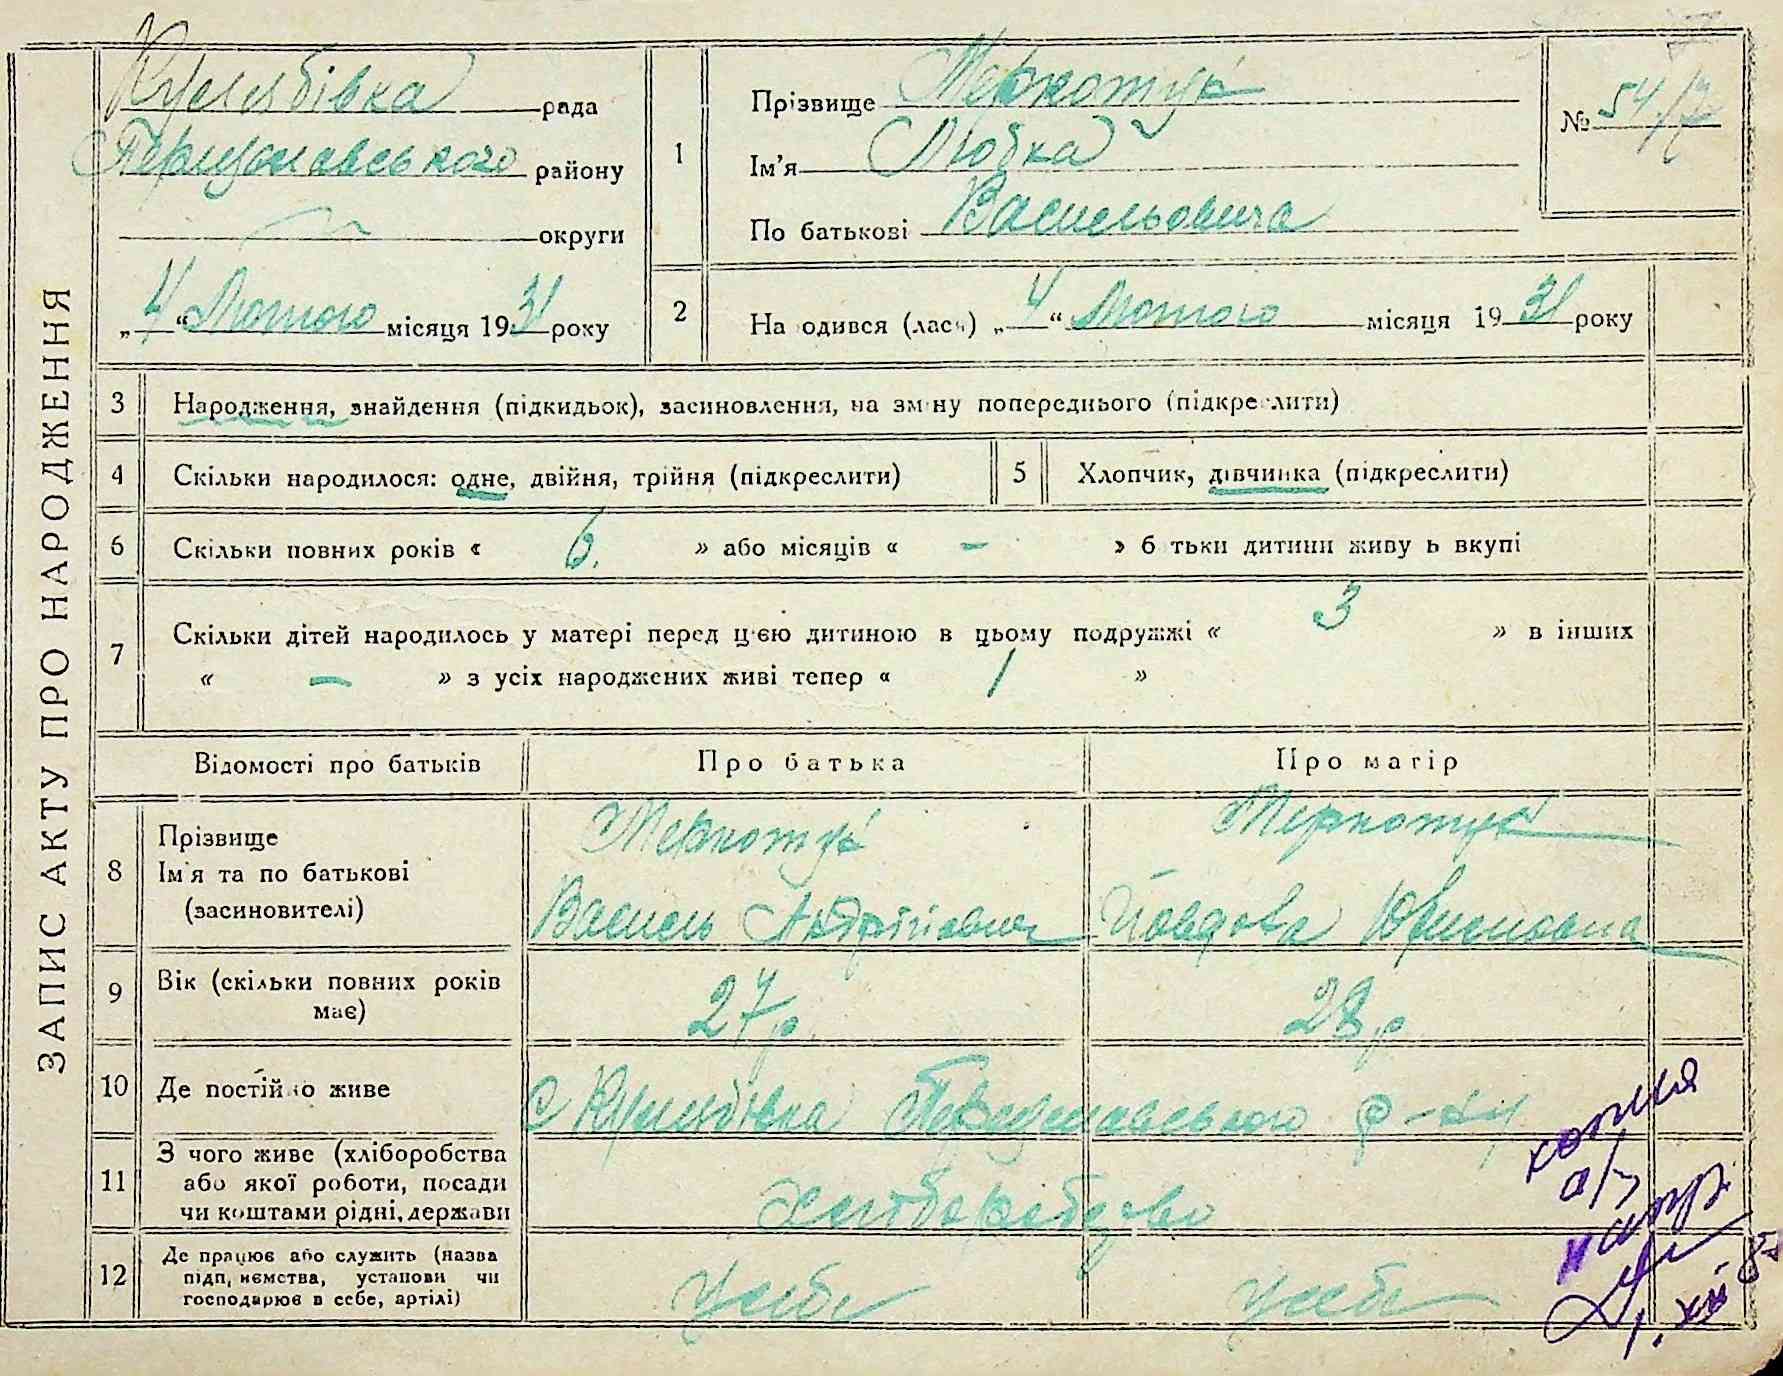 ЗАПИС АКТУ ПРО НАРОДЖЕННЯ
рада
району
округи
„4“ Лютого місяця 1931 року
1
Прізвище
Ім'я Любка
По батькові Васильовича
№ 54/
2
На одився (лася) „4“ Лютого місяця 1931 року
3
Народження, знайдення (підкидьок), засиновлення, на зміну попереднього (підкреслити)
4
Скільки народилося: одне, двійня, трійня (підкреслити)
5
Хлопчик, дівчинка (підкреслити)
6
Скільки повних років « 6. » або місяців « – » б тьки дитини живу ь вкупі
7
Скільки дітей народилось у матері перед ц'єю дитиною в цьому подружжі « 3 » в інших
« – » з усіх народжених живі тепер « 1 »
Відомості про батьків
Про батька
Про матір
8
Прізвище
Ім'я та по батькові
(засиновителі)
Василь Андрійович
9
Вік (скільки повних років
має)
27 р.
28 р
10
Де постійно живе
с р-ну
11
З чого живе (хліборобства
або якої роботи, посади
чи коштами рідні, держави
12
Де працює або служить (назва
підп, иємства, установи чи
господарює в себе, артілі)
у себе
у себе
копия